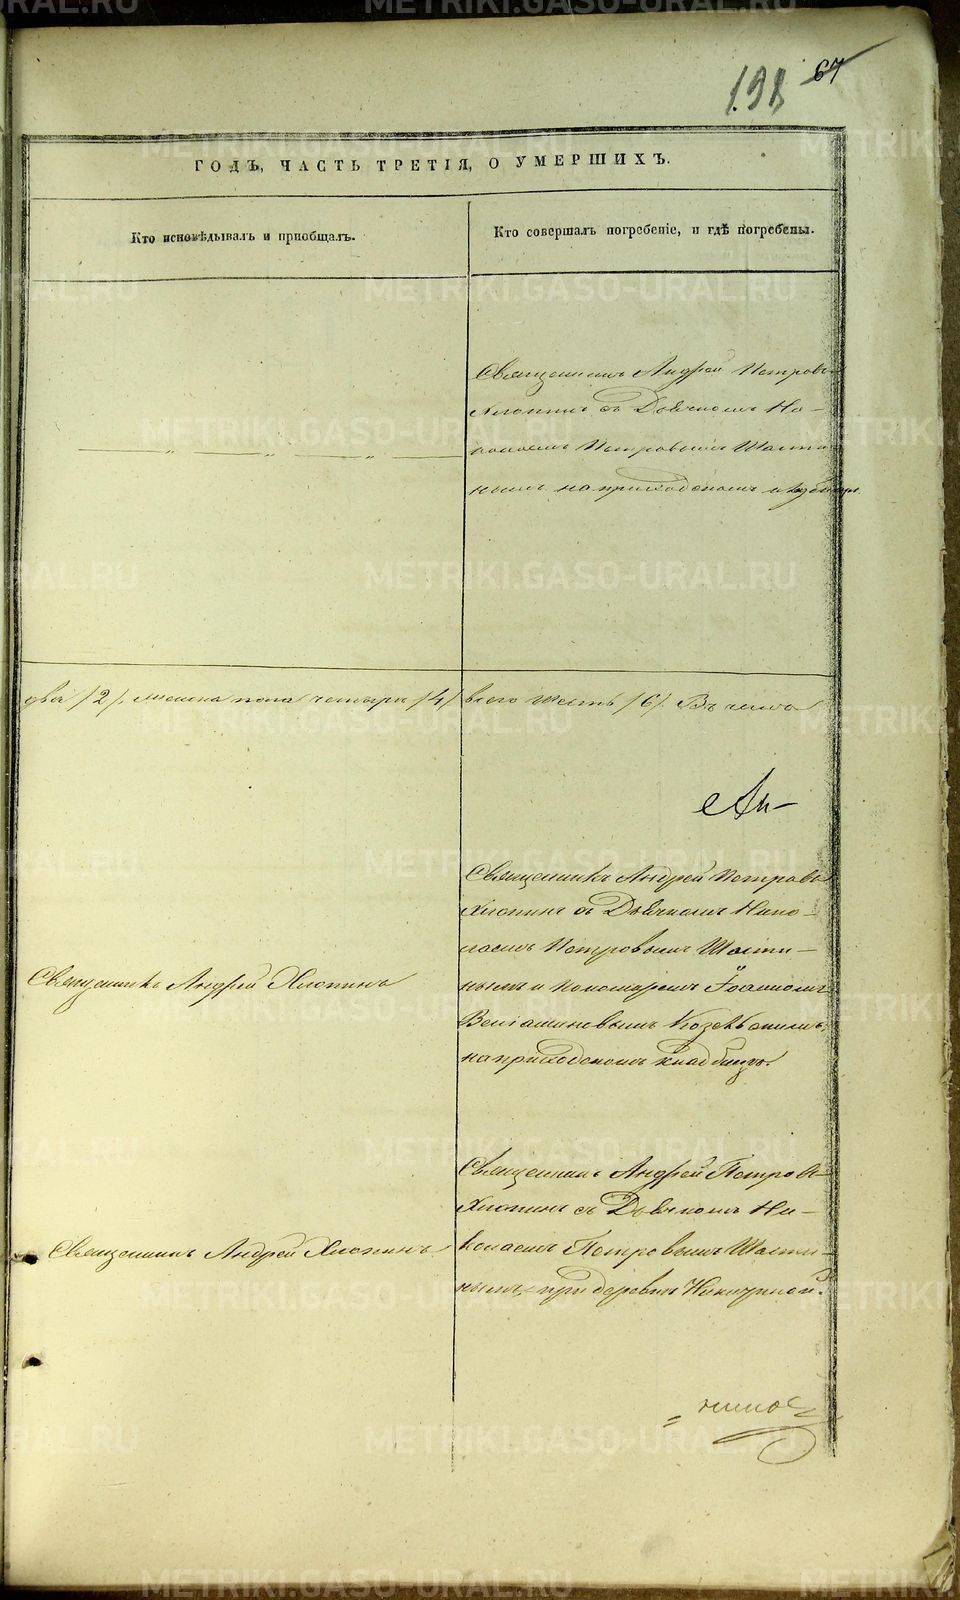 198 67
ГОДЪ, ЧАСТЬ ТРЕТІЯ, О УМЕРШИХЪ.
Кто исповѣдывалъ и пріобщалъ.
Кто совершалъ погребеніе, и гдѣ погребены.
Священникъ Андрей Петровъ
Хлопинъ съ Дьячкомъ Ни-
колаемъ Петровымъ
нымъ на приходскомъ кладбищѣ.
два /2/, женска пола четыре /4/ всего шесть /6/. Въ
Священникъ Андрей Хлопинъ
Священникъ Андрей Петровъ
Хлопинъ съ Дьячкомъ Нико-
лаемъ Петровымъ
нымъ и Пономаремъ Іоанномъ
Веніаминовымъ
на приходскомъ кладбищѣ.
Священникъ Андрей Хлопинъ
Священникъ Андрей Петровъ
Хлопинъ съ Дьячкомъ Ни-
колаемъ Петровымъ
нымъ, при деревни
METRIKI.GASO-URAL.RU